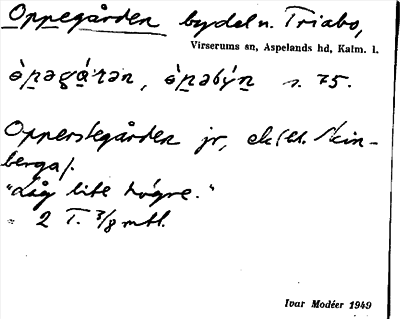 Oppegården bydel n. Triabo,
Virserums sn, Aspelands hd, Kalm. l.
s. 75.
Opperstegården jr,
berga/.
"Låg lite högre."
= 2 T. 3/8 mtl.
Ivar Modéer 1949